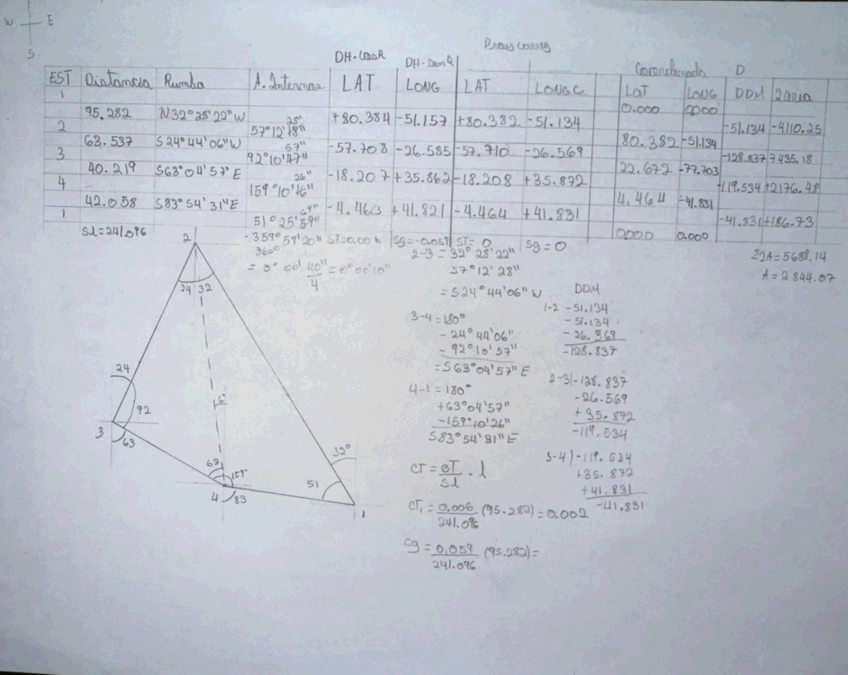 W E
S
DH·CosR DH·SenR Proyecciones
Coordenada D
EST Distancia Rumbo A. Internos LAT LONG LAT LONGC LAT LONG DDM 2area
1 0.000 0.000
95.282 N32°28'22"W +80.384 -51.157 +80.382 -51.134 -51.134 -4110.25
2 57°12'18" 28" 80.382 -51.134
63.537 S24°44'06"W -57.708 -26.585 -57.710 -26.569 -128.837 7435.18
3 92°10'47" 57" 22.672 -77.703
40.219 S63°04'57"E -18.207 +35.862 -18.208 +35.872 -119.534 +2176.48
4 159°10'16" 26" 4.464 -41.831
42.058 S83°54'31"E -4.463 +41.821 -4.464 +41.831 -41.831 +186.73
1 51°25'59" 69" 0.000 0.000
Sl=241.096 -359°59'20" ST=0.006 Sg=-0.059 ST=0 Sg=0
360°
= 0°00'40" = 0°00'10"
4
Σ2A=5688.14
A=2844.07
2-3=32°28'22"
57°12'28"
=S24°44'06"W
3-4=180°
-24°44'06"
-92°10'57"
=S63°04'57"E
4-1=180°
+63°04'57"
-159°10'26"
S83°54'31"E
CT=eT/Sl · l
CT₁=0.006/241.096 (95.282)=0.002
Cg=0.059/241.096 (95.282)=
DDM
1-2 -51.134
-51.134
-26.569
-128.837
2-3/-128.837
-26.569
+35.872
-119.534
3-4/-119.534
+35.872
+41.831
-41.831
2
24 32
24
92
3
63
63 159°
4 83
32°
51
1